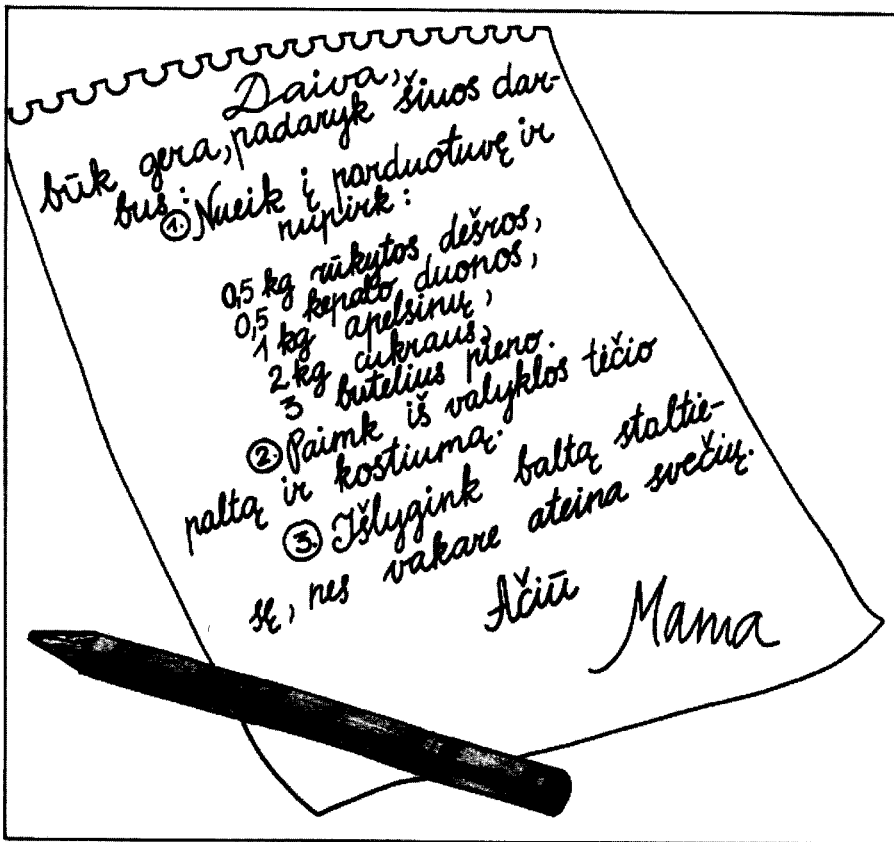 Daiva,
būk gera, padaryk šiuos dar-
bus:
1. Nueik į parduotuvę ir
nupirk:
0,5 kg rūkytos dešros,
0,5 kepalo duonos,
1 kg apelsinų,
2 kg cukraus,
3 butelius pieno.
2. Paimk iš valyklos tėčio
paltą ir kostiumą.
3. Išlygink baltą staltie-
sę, nes vakare ateina svečių.
Ačiū
Mama